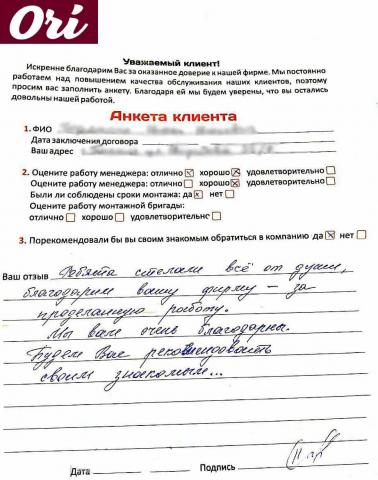 Ori
Уважаемый клиент!
Искренне благодарим Вас за оказанное доверие к нашей фирме. Мы постоянно
работаем над повышением качества обслуживания наших клиентов, поэтому
просим вас заполнить анкету. Благодаря ей мы будем уверены, что вы остались
довольны нашей работой.
Анкета клиента
1. ФИО
Дата заключения договора
Ваш адрес
2. Оцените работу менеджера: отлично хорошо удовлетворительно
Оцените работу менеджера: отлично хорошо удовлетворительно
Были ли соблюдены сроки монтажа: да нет
Оцените работу монтажной бригады:
отлично хорошо удовлетворительно
3. Порекомендовали бы вы своим знакомым обратиться в компанию да нет
Ваш отзыв Ребята сделали всё от души,
благодарим вашу фирму – за
проделанную работу.
Мы вам очень благодарны.
Будем Вас рекомендовать
своим знакомым...
Дата Подпись